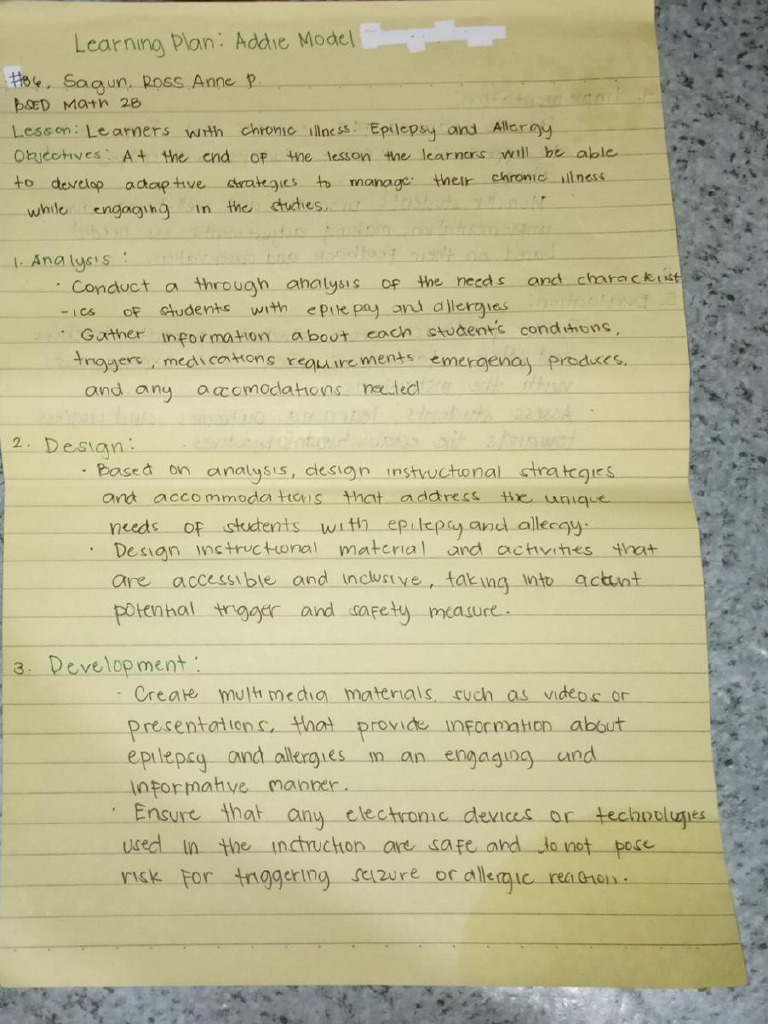 Learning Plan: Addie Model
#36, Sagun, Ross Anne P.
BSED Math 2B
Lesson: Learners with chronic illness: Epilepsy and Allergy
Objectives: At the end of the lesson the learners will be able
to develop adaptive strategies to manage their chronic illness
while engaging in the studies.
1. Analysis:
· Conduct a through analysis of the needs and characterist
-ics of students with epilepsy and allergies
· Gather information about each student's conditions,
triggers, medications requirements emergency produces,
and any accomodations needed
2. Design:
· Based on analysis, design instructional strategies
and accommodations that address the unique
needs of students with epilepsy and allergy.
· Design instructional material and activities that
are accessible and inclusive, taking into
potential trigger and safety measure.
3. Development:
· Create multimedia materials, such as videos or
presentations, that provide information about
epilepsy and allergies in an engaging and
informative manner.
· Ensure that any electronic devices or technologies
used in the instruction are safe and do not pose
risk for triggering seizure or allergic reaction.